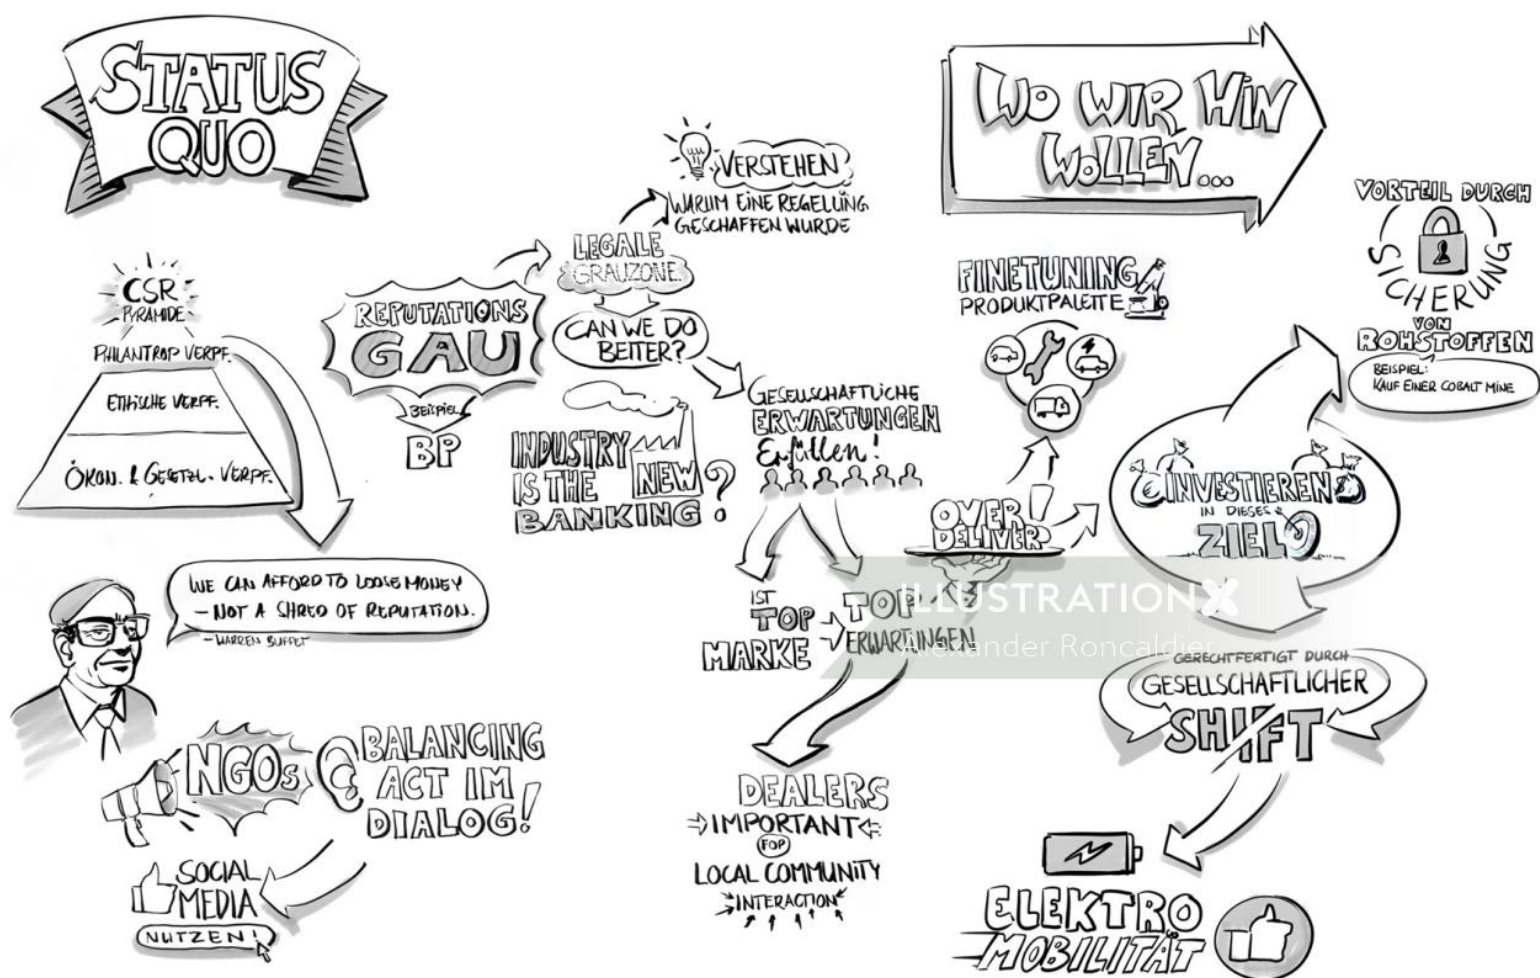 STATUS
QUO
CSR
PYRAMIDE
PHILANTROP VERPF.
ETHISCHE VERPF.
ÖKON. & GESETZL. VERPF.
WE CAN AFFORD TO LOOSE MONEY
– NOT A SHRED OF REPUTATION.
– WARREN BUFFET
NGOs
BALANCING
ACT IM
DIALOG!
SOCIAL
MEDIA
NUTZEN!
REPUTATIONS
GAU
BEISPIEL
BP
LEGALE
GRAUZONE
VERSTEHEN
WARUM EINE REGELUNG
GESCHAFFEN WURDE
CAN WE DO
BETTER?
INDUSTRY
IS THE NEW
BANKING?
GESELLSCHAFTLICHE
ERWARTUNGEN
Erfüllen!
IST
TOP
MARKE
TOP
ERWARTUNGEN
DEALERS
IMPORTANT
FOR
LOCAL COMMUNITY
INTERACTION
WO WIR HIN
WOLLEN...
FINETUNING
PRODUKTPALETTE
OVER
DELIVER!
INVESTIEREN
IN DIESES
ZIEL
VORTEIL DURCH
SICHERUNG
VON
ROHSTOFFEN
BEISPIEL:
KAUF EINER COBALT MINE
GERECHTFERTIGT DURCH
GESELLSCHAFTLICHER
SHIFT
ELEKTRO
MOBILITÄT
ILLUSTRATIONX
Alexander Roncaldier